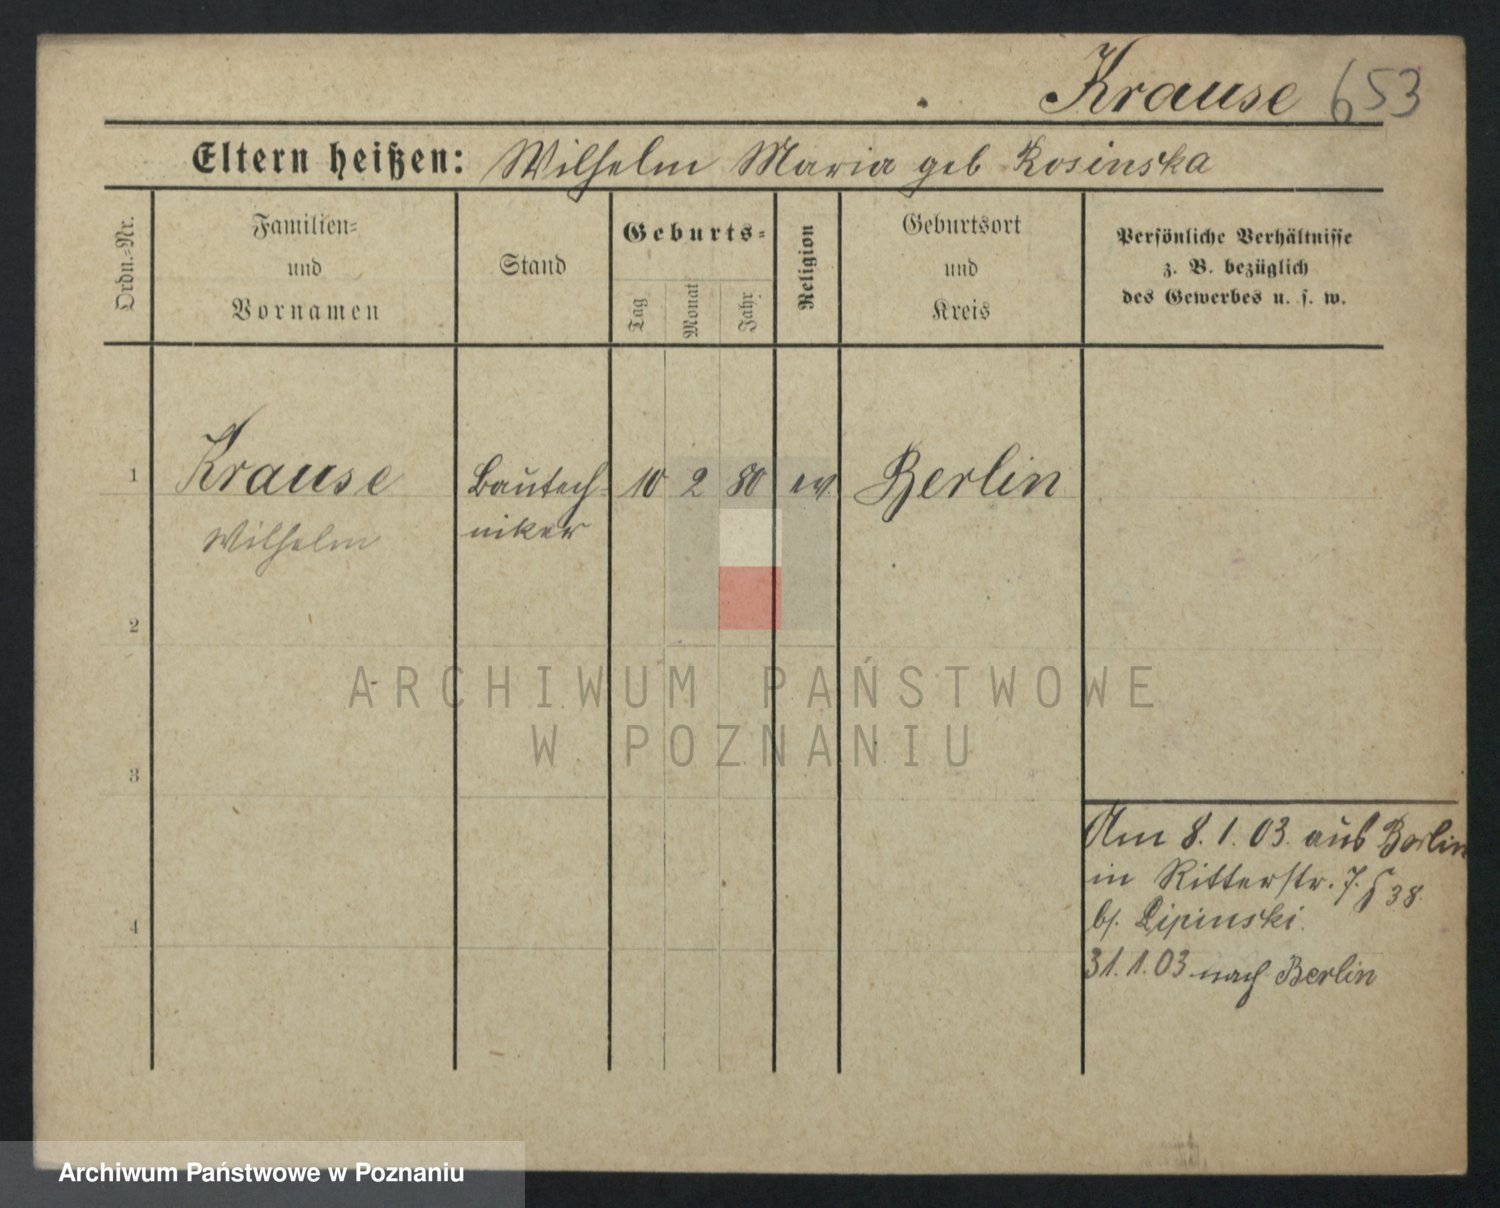 Krause 653
Eltern heißen: Wilhelm Maria geb Rosinska
Ordn.-Nr.
Familien-
und
Vornamen
Stand
Geburts-
Tag
Monat
Jahr
Religion
Geburtsort
und
Kreis
Persönliche Verhältnisse
z. B. bezüglich
des Gewerbes u. s. w.
1 Krause Bautech- 10 2 80 ev. Berlin
Wilhelm niker
2
ARCHIWUM PAŃSTWOWE
W POZNANIU
3
Am 8. 1. 03. aus Berlin
in Ritterstr. 38
4 b/. Lipinski.
31. 1. 03 nach Berlin
Archiwum Państwowe w Poznaniu